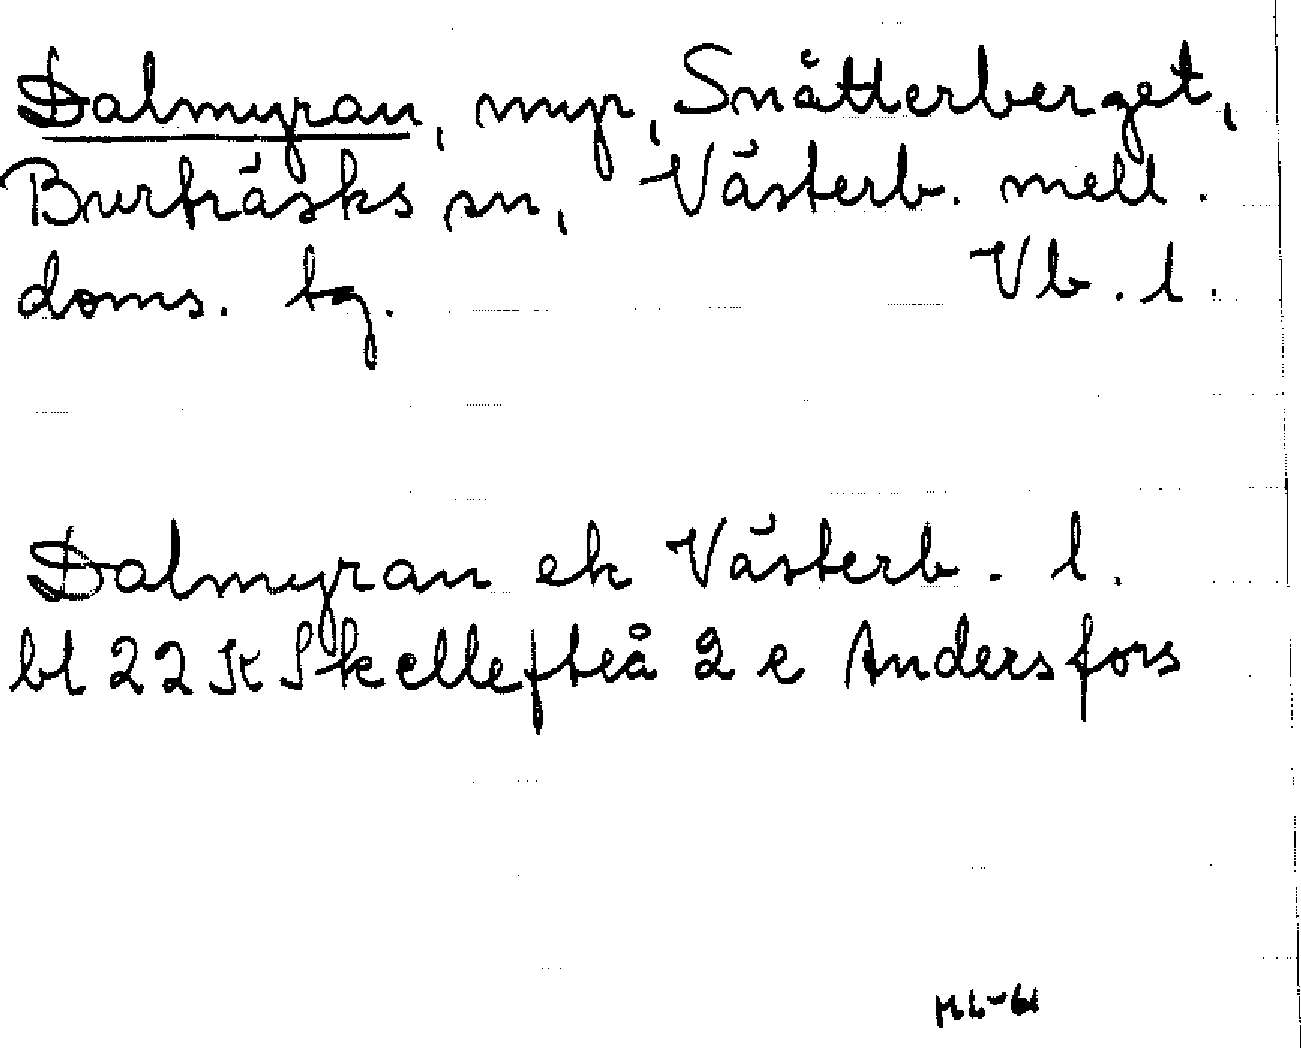 Dalmyran, myr, Snåtterberget,
Burträsks sn, Västerb. mell.
doms. tg. Vb. l.
Dalmyran ek Västerb. l.
bl 22 K Skellefteå 2 e Andersfors
ML-61